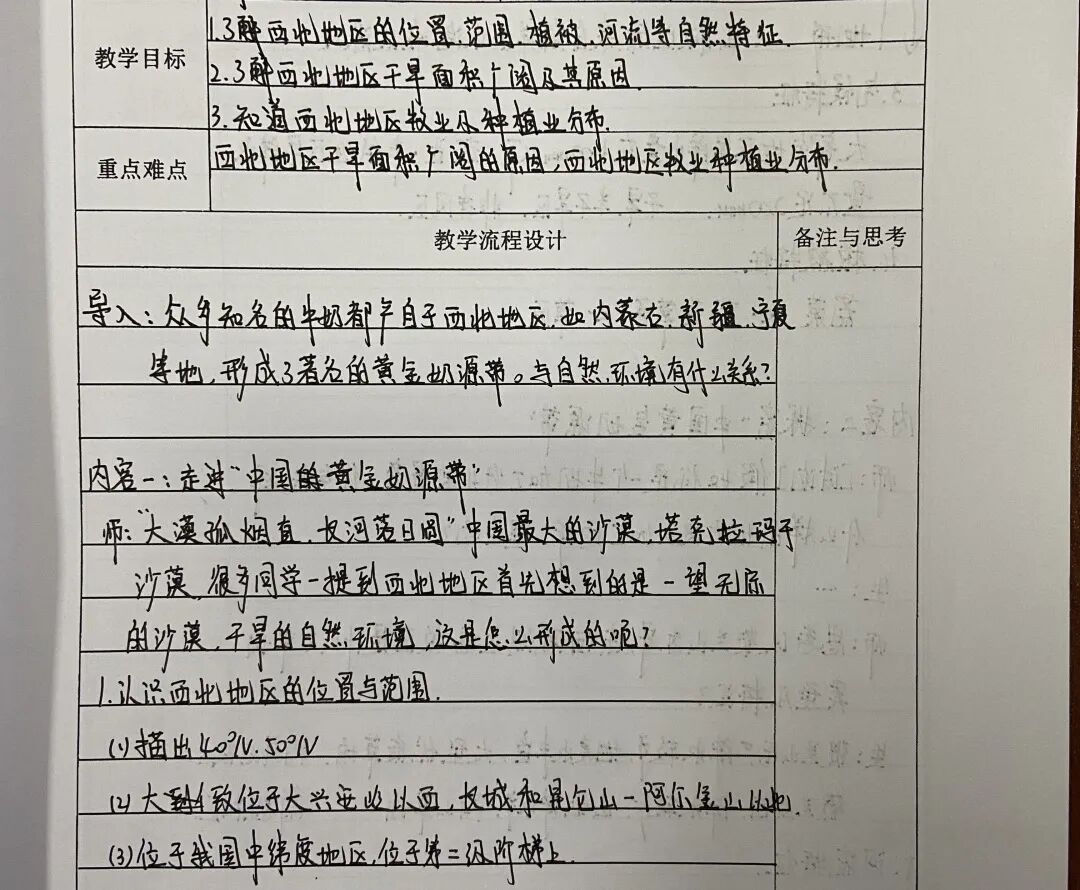 教学目标
1.了解西北地区的位置、范围、植被、河流等自然特征.
2.了解西北地区干旱面积广阔及其原因.
3.知道西北地区牧业及种植业分布.
重点难点
西北地区干旱面积广阔的原因,西北地区牧业种植业分布.
教学流程设计
备注与思考
导入:众多知名的牛奶都产自于西北地区.如内蒙古.新疆.宁夏
等地,形成了著名的黄金奶源带。与自然环境有什么关系?
内容一:走进“中国的黄金奶源带”
师:“大漠孤烟直,长河落日圆”中国最大的沙漠,塔克拉玛干
沙漠,很多同学一提到西北地区首先想到的是一望无际
的沙漠,干旱的自然环境,这是怎么形成的呢?
1.认识西北地区的位置与范围.
(1)描出40°N.50°N
(2)大致位于大兴安岭以西,长城和昆仑山—阿尔金山以北
(3)位于我国中纬度地区,位于第二级阶梯上.